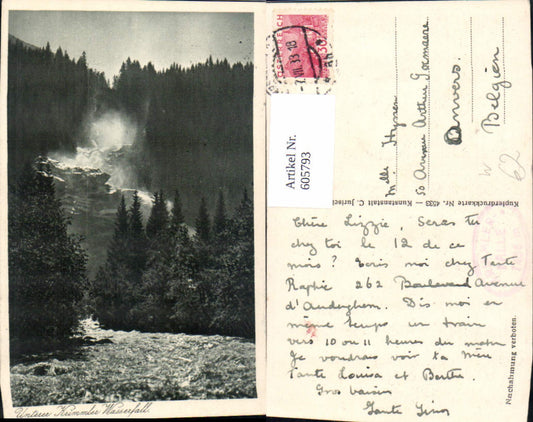 Unterer Krimmler Wasserfall.
Artikel Nr.
605793
Mlle Hymen
50 Avenue Arthur Goemaere
Anvers.
Belgien
62
Kupferdruckkarte Nr. 4533 — Kunstanstalt C. Jurischek
Nachahmung verboten.
Chère Lizzie, Seras tu
chez toi le 12 de ce
mois? Ecris moi chez Tante
Raphie 262 Boulevard Avenue
d'Auderghem. Dis moi en
même temps un train
vers 10 ou 11 heures du matin
Je voudrais voir ta Mère
Tante Louisa et Berthe.
Gros baisers
Tante